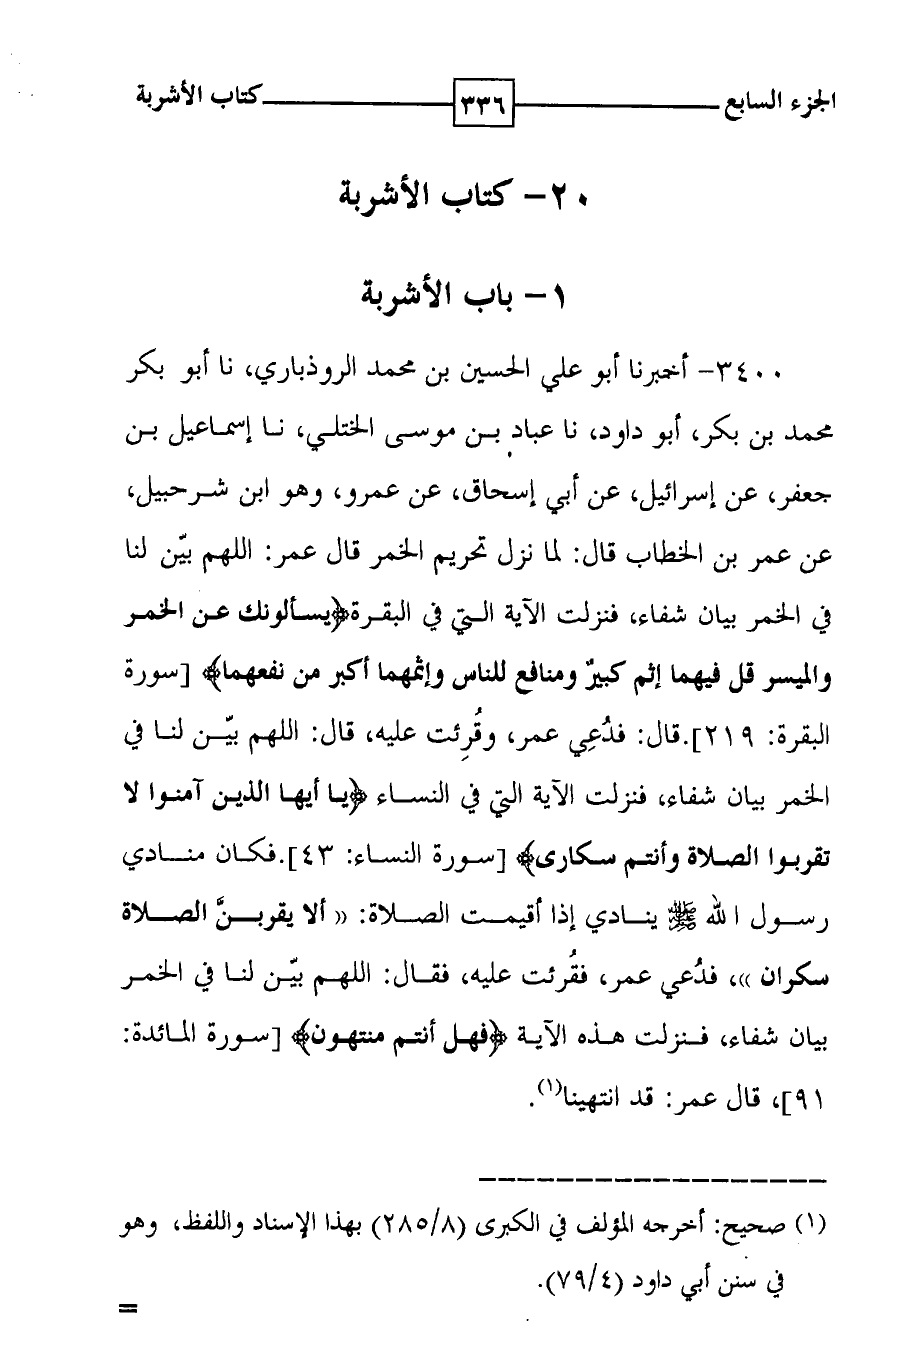 الجزء السابع ٣٣٦ كتاب الأشربة
٢٠- كتاب الأشربة
١- باب الأشربة
٣٤٠٠- أخبرنا أبو علي الحسين بن محمد الروذباري، نا أبو بكر
محمد بن بكر، أبو داود، نا عباد بن موسى الختلي، نا إسماعيل بن
جعفر، عن إسرائيل، عن أبي إسحاق، عن عمرو، وهو ابن شرحبيل،
عن عمر بن الخطاب قال: لما نزل تحريم الخمر قال عمر: اللهم بيّن لنا
في الخمر بيان شفاء، فنزلت الآية التي في البقرة﴿يسألونك عن الخمر
والميسر قل فيهما إثم كبيرٌ ومنافع للناس وإثمهما أكبر من نفعهما﴾ [سورة
البقرة: ٢١٩].قال: فدُعِي عمر، وقُرِئت عليه، قال: اللهم بيّن لنا في
الخمر بيان شفاء، فنزلت الآية التي في النساء ﴿يا أيها الذين آمنوا لا
تقربوا الصلاة وأنتم سكارى﴾ [سورة النساء: ٤٣].فكان منادي
رسول الله ﷺ ينادي إذا أقيمت الصلاة: « ألا يقربنَّ الصلاة
سكران »، فدُعي عمر، فقُرئت عليه، فقال: اللهم بيّن لنا في الخمر
بيان شفاء، فنزلت هذه الآية ﴿فهل أنتم منتهون﴾ [سورة المائدة:
٩١]، قال عمر: قد انتهينا(١).
(١) صحيح: أخرجه المؤلف في الكبرى (٢٨٥/٨) بهذا الإسناد واللفظ، وهو
في سنن أبي داود (٧٩/٤).
=